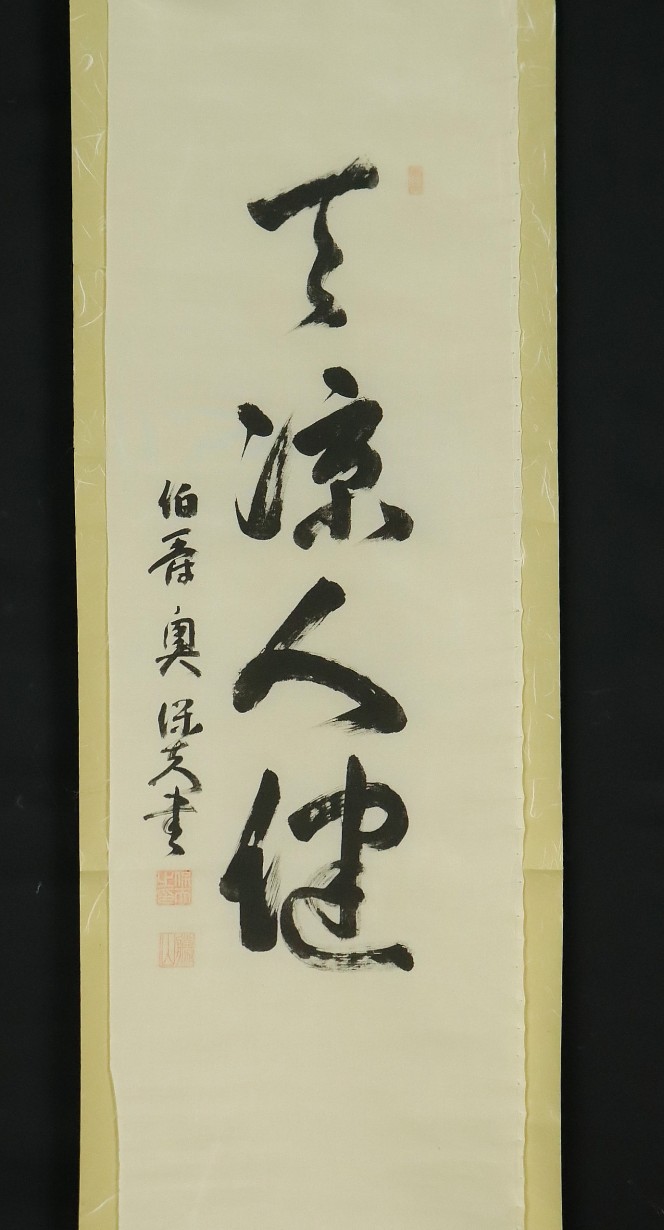 天涼人健
伯爵奥保夫書